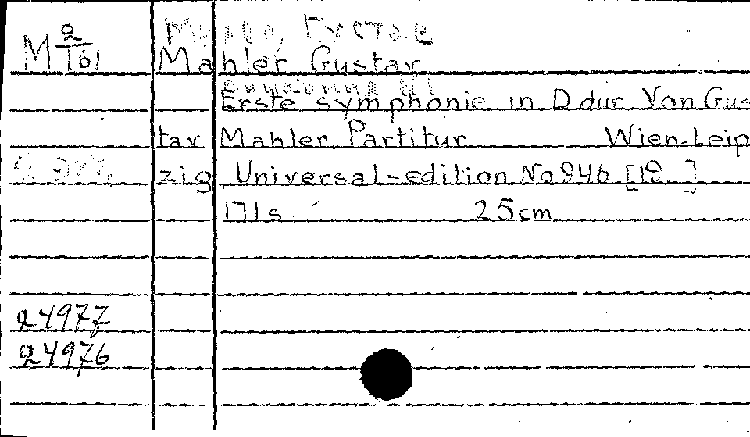 M 2/161
Малер, Густав
Mahler Gustav
Erste symphonie in D dur Von Gus
tav Mahler Partitur Wien-Leip
zig Universal-edition No 946 [19 ]
171 s 25 cm
24977
24976